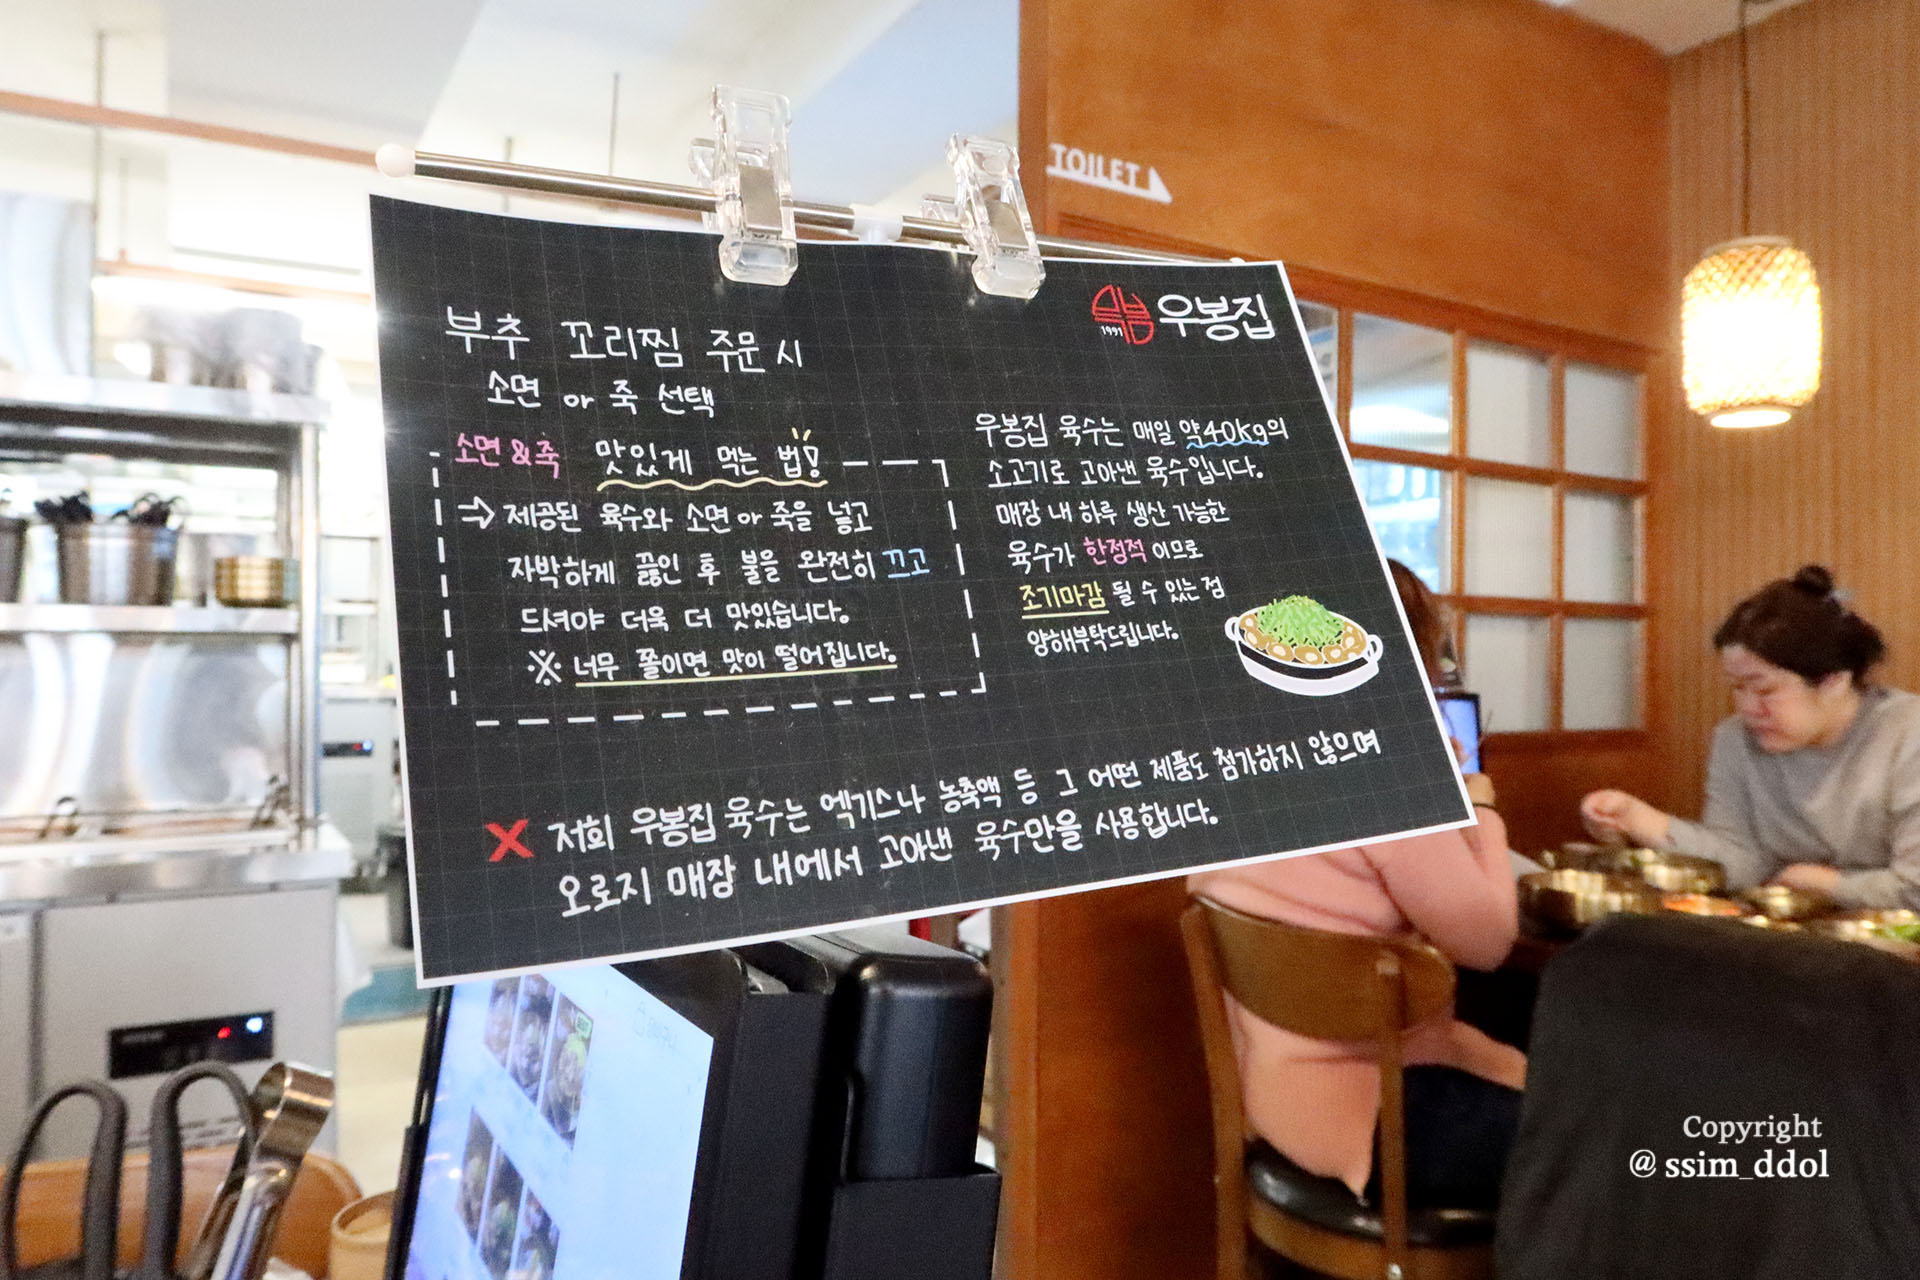 TOILET
1991 우봉집
부추 꼬리찜 주문 시
소면 or 죽 선택
소면 & 죽 맛있게 먹는 법!
→ 제공된 육수와 소면 or 죽을 넣고
자박하게 끓인 후 불을 완전히 끄고
드셔야 더욱 더 맛있습니다.
※ 너무 쫄이면 맛이 떨어집니다.
우봉집 육수는 매일 약40kg의
소고기로 고아낸 육수입니다.
매장 내 하루 생산 가능한
육수가 한정적 이므로
조기마감 될 수 있는 점
양해부탁드립니다.
X 저희 우봉집 육수는 엑기스나 농축액 등 그 어떤 제품도 첨가하지 않으며
오로지 매장 내에서 고아낸 육수만을 사용합니다.
Copyright
@ ssim_ddol